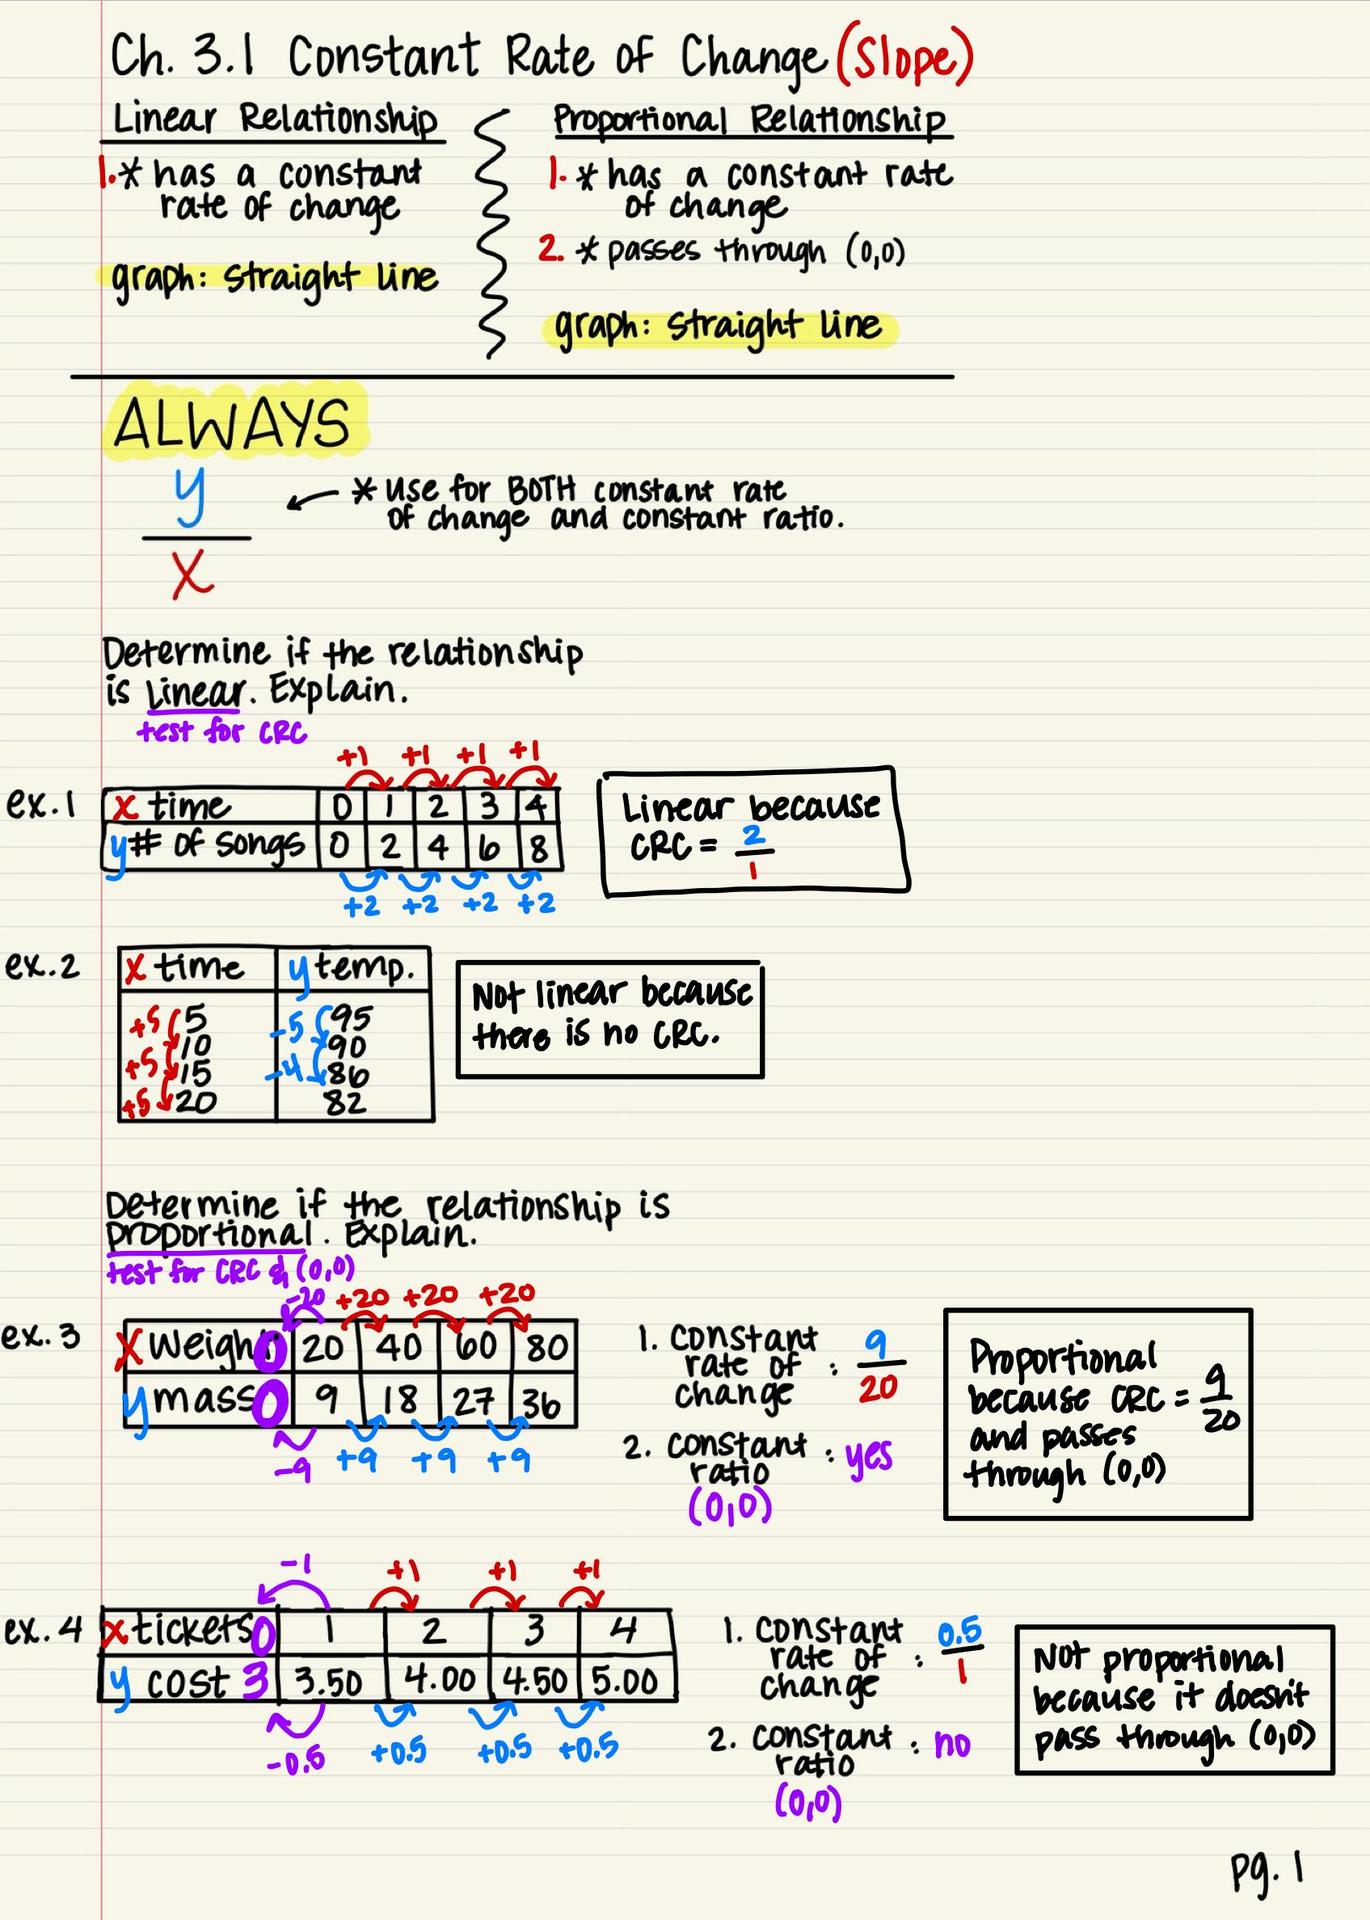 Ch. 3.1 Constant Rate of Change (Slope)
Linear Relationship
1. * has a constant
rate of change
graph: straight line
Proportional Relationship
1. * has a constant rate
of change
2. * passes through (0,0)
graph: straight line
ALWAYS
y
x
* Use for BOTH constant rate
of change and constant ratio.
Determine if the relationship
is Linear. Explain.
test for CRC
+1 +1 +1 +1
ex.1
x time 0 1 2 3 4
y # of songs 0 2 4 6 8
+2 +2 +2 +2
Linear because
CRC = 2/1
ex.2
x time y temp.
+5 5 -5 95
10 90
+5 15 -4 86
+5 20 82
Not linear because
there is no CRC.
Determine if the relationship is
proportional. Explain.
test for CRC & (0,0)
-20 +20 +20 +20
ex. 3
x weigh 0 20 40 60 80
y mass 0 9 18 27 36
-9 +9 +9 +9
1. constant
rate of : 9/20
change
2. constant : yes
ratio
(0,0)
Proportional
because CRC = 9/20
and passes
through (0,0)
-1 +1 +1 +1
ex. 4
x tickets 0 1 2 3 4
y cost 3 3.50 4.00 4.50 5.00
-0.5 +0.5 +0.5 +0.5
1. constant
rate of : 0.5/1
change
2. constant : no
ratio
(0,0)
Not proportional
because it doesn't
pass through (0,0)
pg. 1